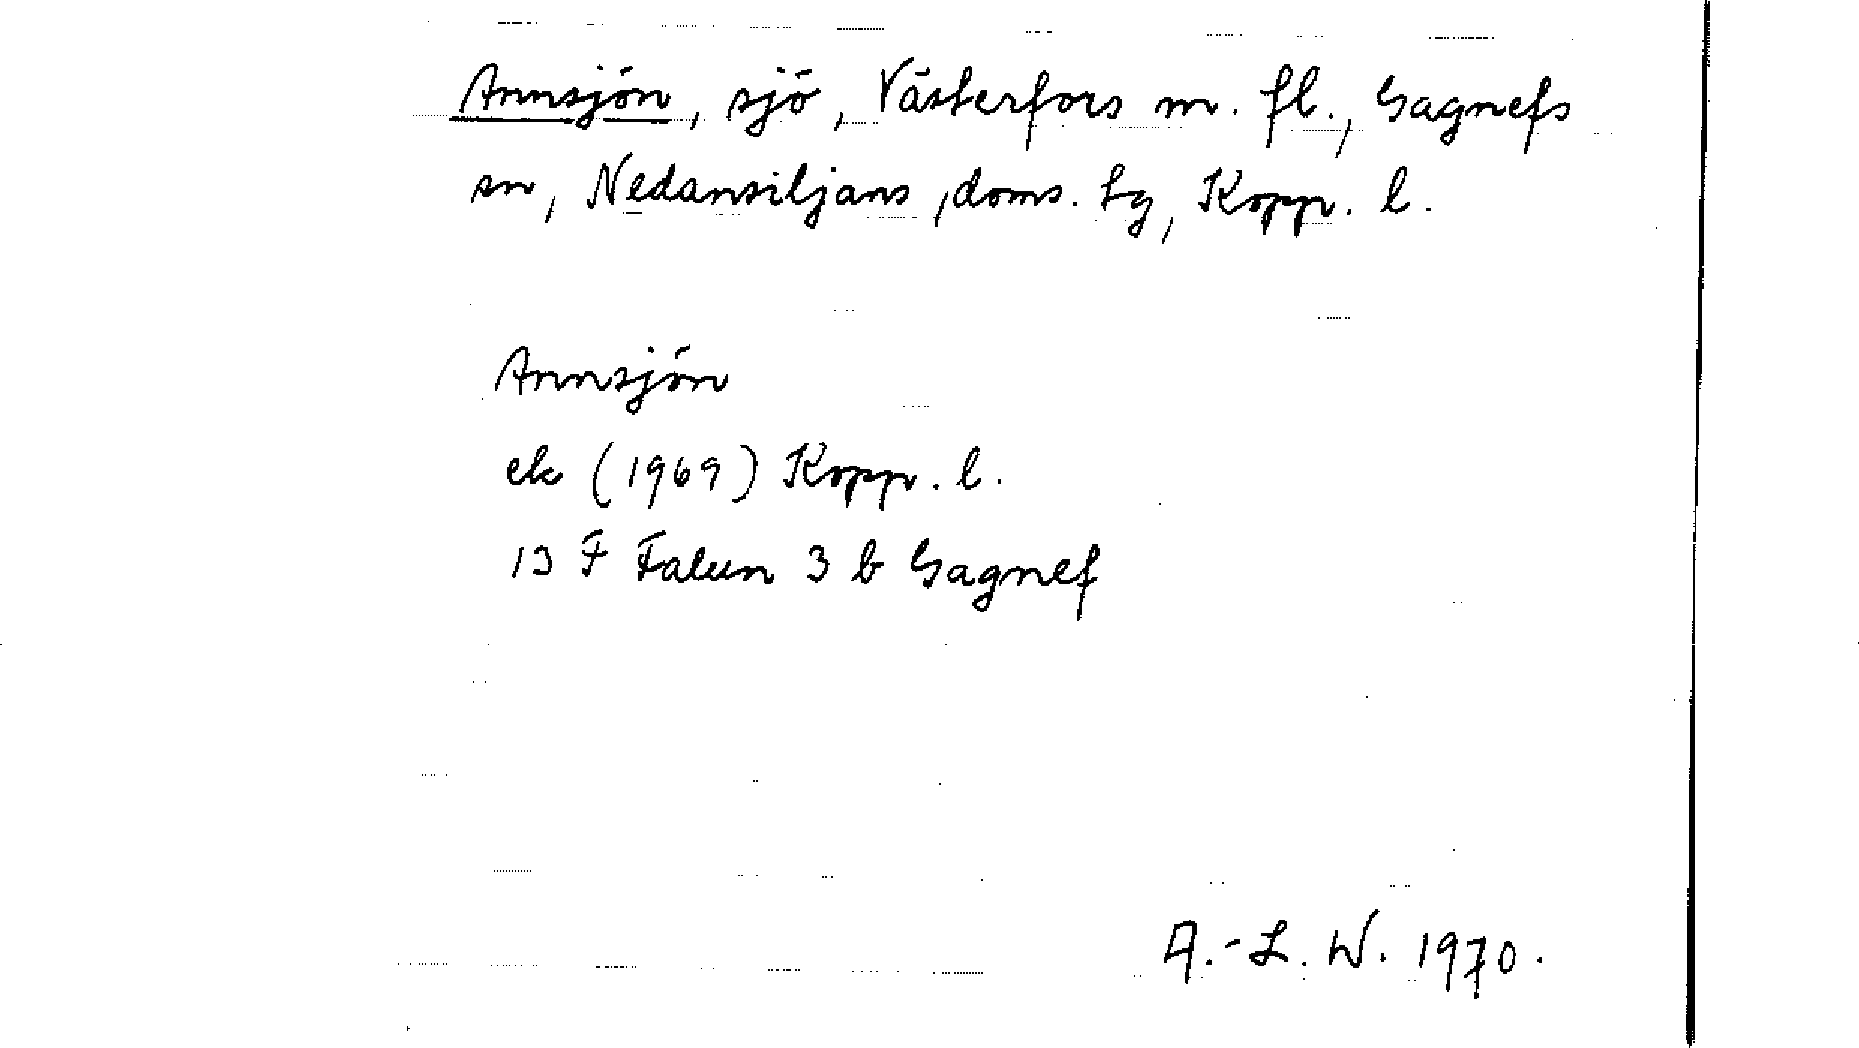 Annsjön, sjö, Västerfors m. fl., Gagnefs
sn, Nedansiljans, doms. tg, Kopp. l.
Annsjön
ek (1969) Kopp. l.
13 F Falun 3 b Gagnef
A.-L. W. 1970.